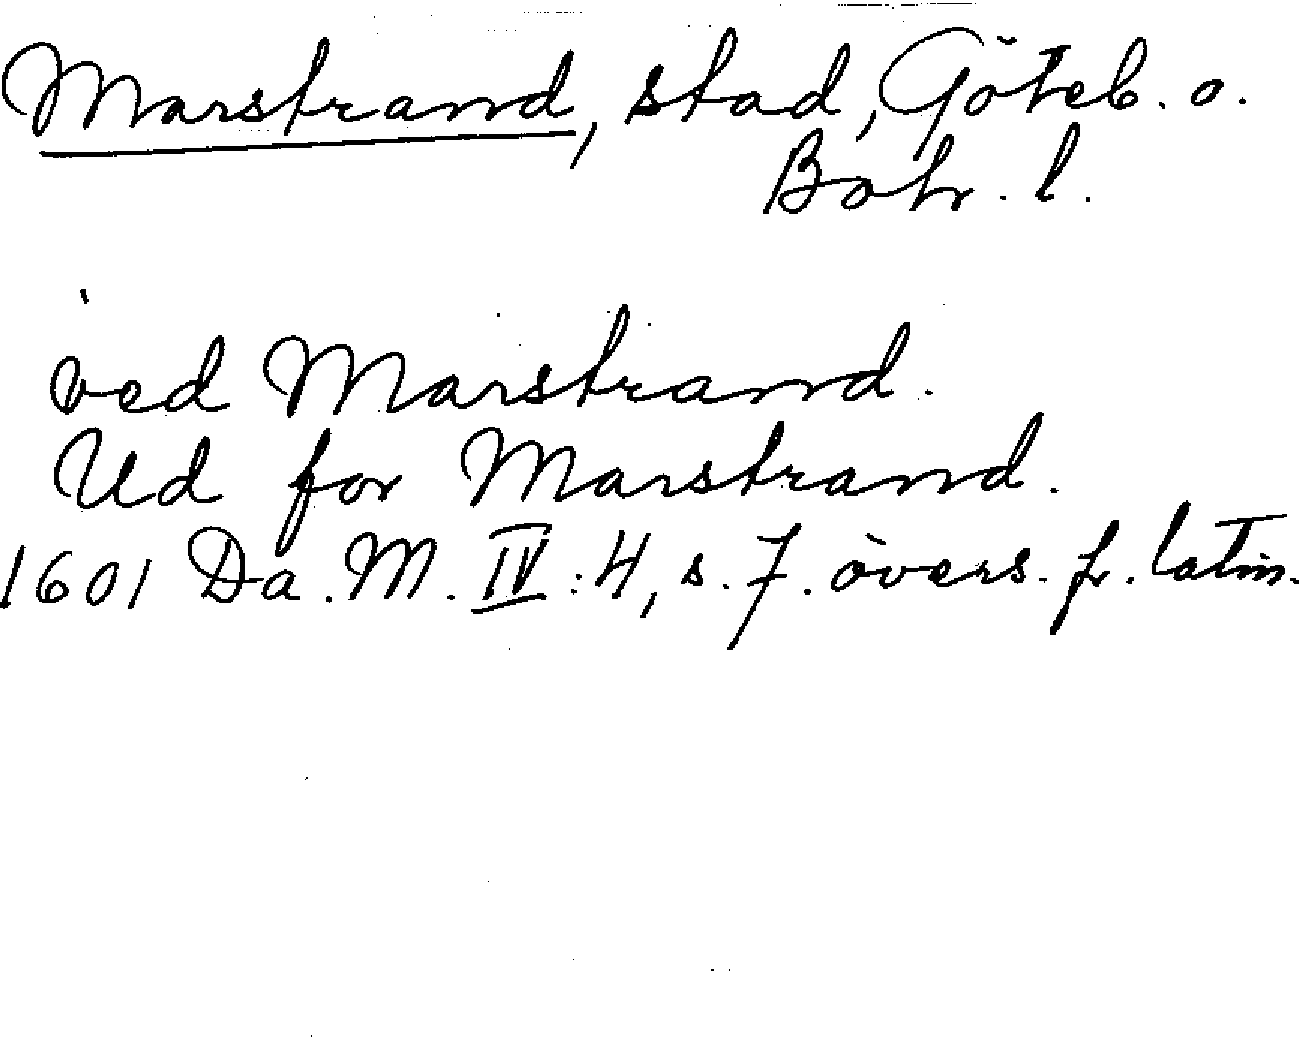 Marstrand, stad, Göteb. o.
Boh. l.
ved Marstrand.
Ud for Marstrand.
1601 Da. M. IV: 4, s. 7. övers. fr. latin.